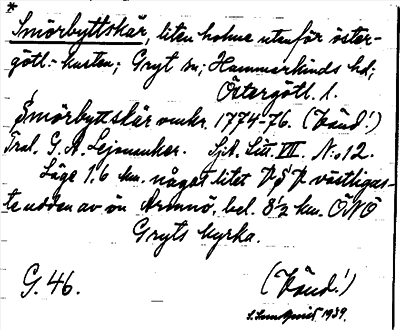 *
Smörbyttskär, liten holme utenför öster-
götl.-kusten; Gryt sn; Hammarkinds hd;
Östergötl. l.
Smörbyttskär omkr. 1774-76. (Känd!)
Tral. G. A. Lejonanker. Sjk. Litt. VII. N:o 12.
Läge 1.6 km. något litet V. § V. västligas-
te udden av ön Armnö, bel. 8½ km. ÖNÖ
Gryts kyrka.
G. 46. (Känd!)
1939.